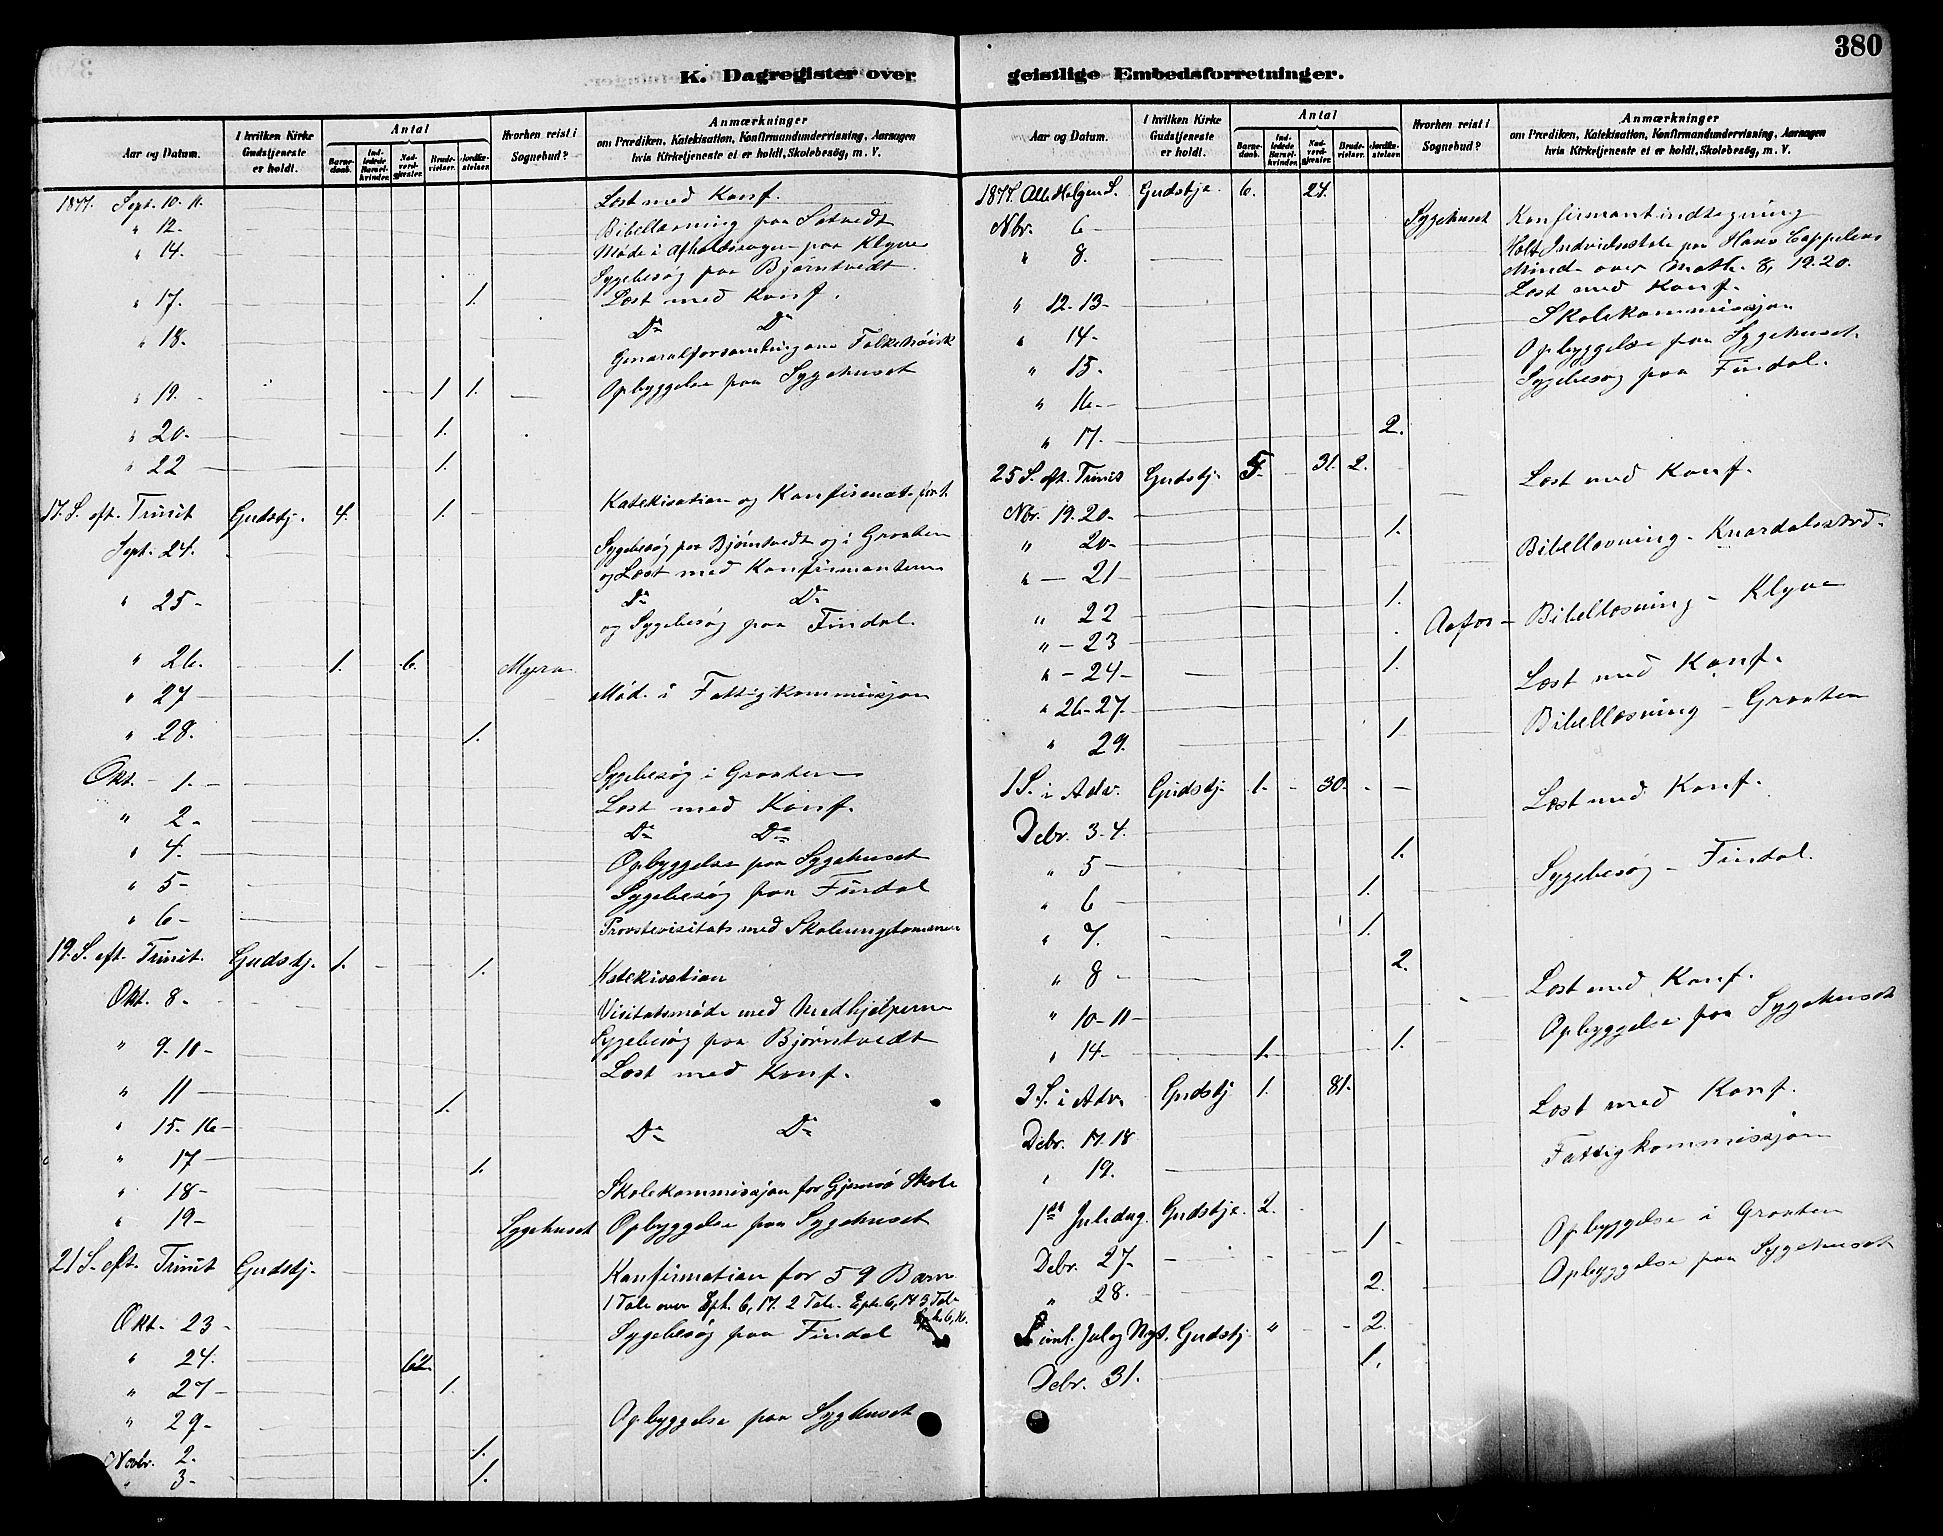 380
K. Dagregister over geistlige Embedsforretninger.
Aar og Datum.
I hvilken Kirke Gudstjeneste er holdt.
Antal
Barnedaab.
Indledede Barselkvinder.
Nadverdgjester.
Brudevielser.
Jordfæstelser.
Hvorhen reist i Sognebud?
Anmærkninger
om Prædiken, Katekisation, Konfirmandundervisning, Aarsagen
hvis Kirketjeneste ei er holdt, Skolebesög, m. V.
1877. Sept. 10. 11. Læst med Konf.
" 12. Bibellæsning paa
" 14. Møde i Afholdssagen paa Klyve
Sygebesøg paa Bjørntvedt
" 17. 1. Læst med Konf.
" 18. Do Do
Generalforsamling
" 19. 1. 1. Opbyggelse paa Sygehuset
" 20. 1.
" 22 1.
17. S. eft. Trinit Gudstj. 4. 1. Katekisation og
Sept. 24. Sygebesøg paa Bjørntvedt og i Graaten
og Læst med Konfirmanterne
" 25 Do Do
og Sygebesøg paa Findal.
" 26. 1. 6. Myra
" 27 Møde i Fattigkommissjon
" 28. 1.
Okt. 1. Sygebesøg i Graaten
" 2 Læst med Konf.
" 4. Do Do
Opbyggelse paa Sygehuset
" 5 Sygebesøg paa Findal
" 6 Provstevisitats med Skoleungdommen
19. S. eft. Trinit. Gudstj. 1. 1. Katekisation
Okt. 8 Visitatsmøde med Medhjelperne
" 9. 10 Sygebesøg paa Bjørntvedt
Læst med Konf.
" 11 1.
" 15. 16 Do Do
" 17 1.
" 18 Skolekommissjon for Gjemsø Skole
" 19 Sygehuset Opbyggelse paa Sygehuset
21 S. eft. Trinit Gudstj. Konfirmation for 59 Børn
1 Tale over Eph. 6, 17. 2 Tale Eph. 6, 17 3 Tale
Eph. 6, 16.
Okt. 23 Sygebesøg paa Findal
" 24. 62.
" 27 1.
" 29 Opbyggelse paa Sygehuset
Novbr. 2. 1.
" 3 1.
Aar og Datum.
I hvilken Kirke Gudstjeneste er holdt.
Antal
Barnedaab.
Indledede Barselkvinder.
Nadverdgjester.
Brudevielser.
Jordfæstelser.
Hvorhen reist i Sognebud?
Anmærkninger
om Prædiken, Katekisation, Konfirmandundervisning, Aarsagen
hvis Kirketjeneste ei er holdt, Skolebesög, m. V.
1877. Alle Helgen S. Gudstje. 6. 24.
Nbr. 6 Sygehuset Konfirmantindtegning
" 8. Holdt Indvielsestale paa Hans Cappelens
Minde over Math. 8, 19. 20.
" 12. 13 Læst med Konf.
" 14 Skolekommissjon
" 15. Opbyggelse paa Sygehuset
" 16 Sygebesøg paa Findal.
" 17. 2.
25 S. eft. Trinit Gudstj. 5. 31. 2.
Nbr. 19. 20 Læst med Konf.
" 20 1.
" 21 Bibellæsning - Knardalsstrd.
" 22 1.
" 23 Aafos Bibellæsning - Klyve
" 24 1.
" 26-27. Læst med Konf.
" 29. 1. Bibellæsning - Graaten
1 S. i Adv. Gudstj. 1. 30.
Debr. 3. 4. Læst med Konf.
" 5 1.
" 6 1. Sygebesøg - Findal.
" 7. 1.
" 8 2.
" 10-11 Læst med Konf.
" 14 1. 1. Opbyggelse paa Sygehuset
3 S. i Adv. Gudstj 1. 81.
Debr. 17. 18 Læst med Konf.
" 19. Fattigkommissjon
1ste Juledag. Gudstje. 2.
Debr. 27 1. Opbyggelse i Graaten
" 28. 2. Opbyggelse paa Sygehuset
S iml. Jul og Nyt. Gudstj. " 2.
Debr. 31. 1.